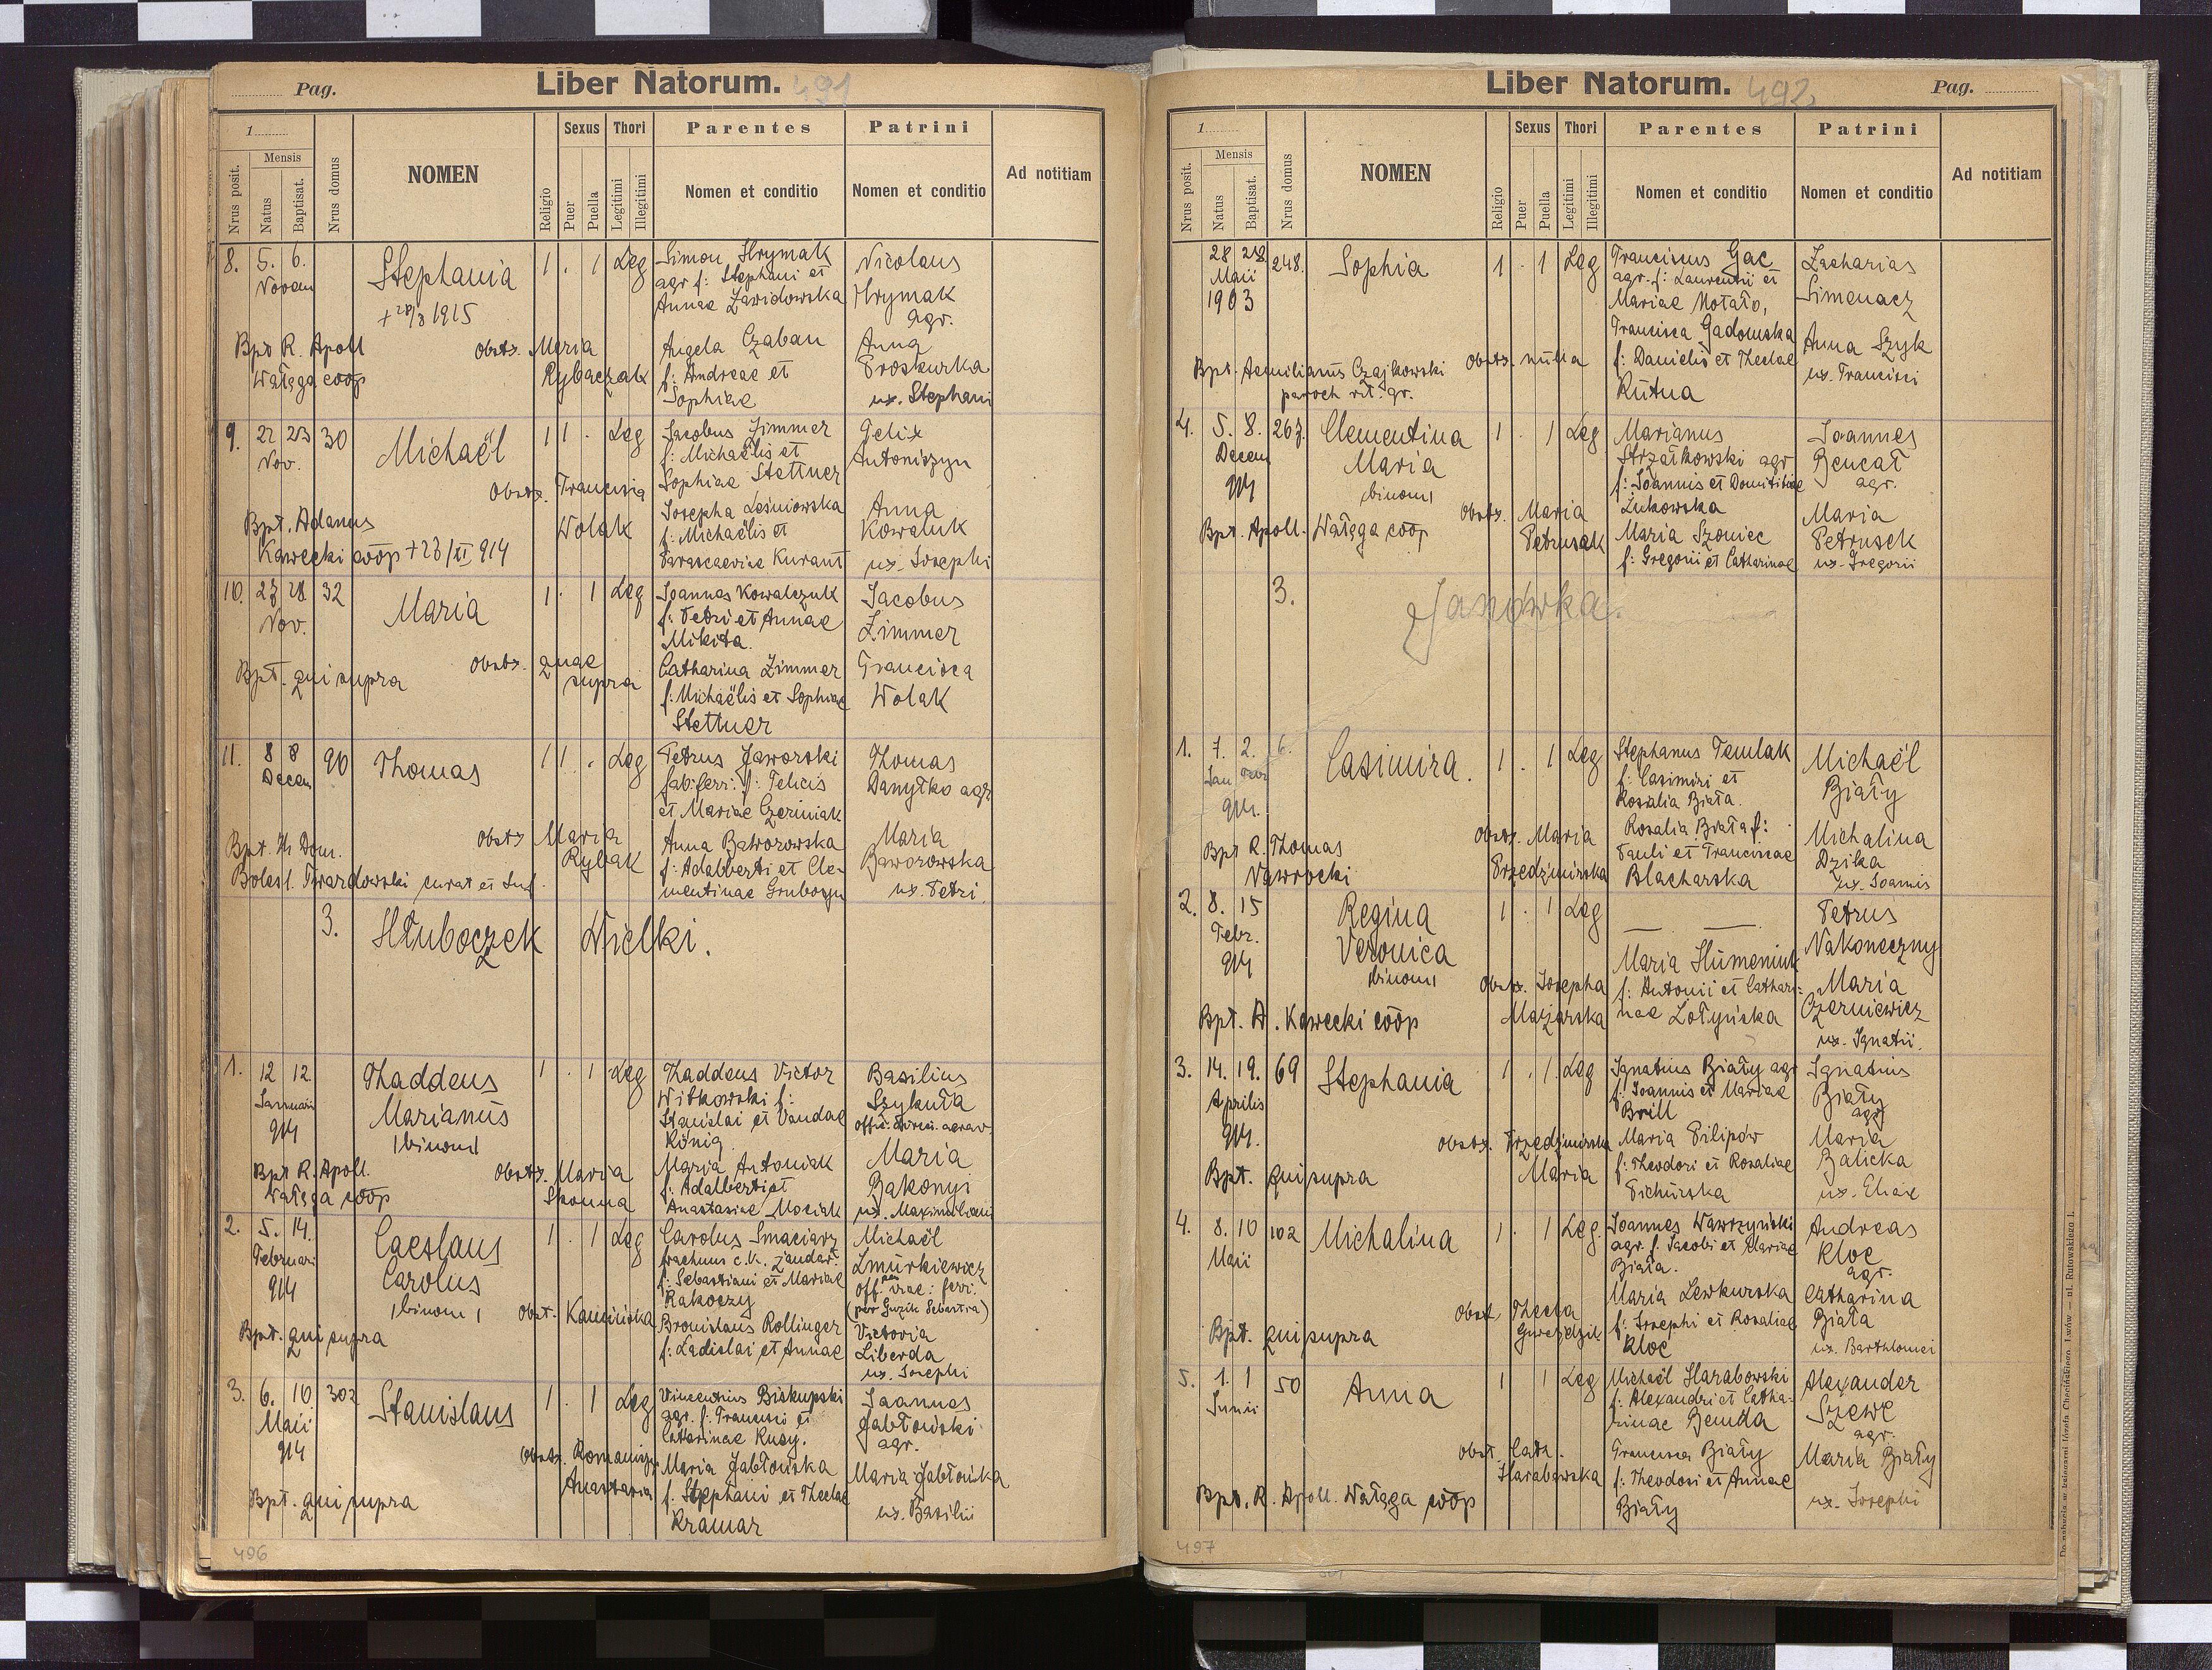 Pag.
Liber Natorum. 491
1
Nrus posit.
Mensis
Natus
Baptisat.
Nrus domus
NOMEN
Religio
Sexus
Puer
Puella
Thori
Legitimi
Illegitimi
Parentes
Nomen et conditio
Patrini
Nomen et conditio
Ad notitiam
8. 5. 6. Stephania 1 . 1 Leg
Novem
+ 1915
Bpt R. Apoll
Wałęga coop
Obstr. Maria
Rybaczak
Simon Hrymak
agr f: Stephani et
Annae Zawidowska
Angela Czaban
f: Andreae et
Sophiae
Nicolaus
Hrymak
agr.
Anna
Proskurka
ux. Stephani
9. 22 23 30 Michaël 1 1 . Leg
Nov.
Obstr. Francisia
Wolak
Bpt. Adamus
Kawecki coop + 23/XI 914
Jacobus Zimmer
f: Michaëlis et
Sophiae Stettner
Josepha Leśniowska
f: Michaëlis et
Parascaeviae Kurant
Felix
Antoniszyn
Anna
Kowaluk
ux. Josephi
10. 27 28 32 Maria 1 . 1 Leg
Nov.
Obstr. quae
supra
Bpt. qui supra
Joannes Kowalczuk
f: Petri et Annae
Mikita.
Catharina Zimmer
f: Michaëlis et Sophiae
Stettner
Jacobus
Zimmer
Francisca
Wolak
11. 8 8 90 Thomas 1 1 . Leg
Decem
Obstr Maria
Rybak
Bpt. Dom.
Bolesl. Twardowski curat et Inf.
Petrus Jaworski
fab: ferr: f: Felicis
et Mariae Czeriniak
Anna Baworowska
f: Adalberti et Cle-
mentinae Gruboszyn
Thomas
Danyłko agr
Maria
Baworowska
ux. Petri
3. Hłuboczek Wielki.
1. 12 12 Thaddeus 1 . 1 Leg
Januarii Marianus
914 |binom|
Bpt R. Apoll.
Wałęga coop
Obstr. Maria
Skonna
Thaddeus Victor
Witkowski f:
Stanislai et Vandae
König
Maria Antoniak
f: Adalberti et
Anastasiae Mociak
Basilius
Szykuła
Maria
Bakonyi
ux. Maximiliani
2. 5. 14. Caeslaus 1 . 1 Leg
Februarii Carolus
914 |binom|
Obst. Kamińska
Bpt. qui supra
Carolus Smaciarz
wachm c.k. żandar.
f: Sebastiani et Mariae
Rakoczy
Bronislaus Rollinger
f: Ladislai et Annae
Michaël
Żmurkiewicz
off. viae: ferri.
(per Guzik Sebastia)
Victoria
Liberda
ux. Josephi
3. 6. 10. 302 Stanislaus 1 . 1 Leg
Maii
914
Obstr. Romaniszyn
Anastasia
Bpt. qui supra
Vincentius Biskupski
agr. f: Francisci et
Catharinae Kusy.
Maria Jabłońska
f: Stephani et Theclae
Kramar
Joannes
Jabłoński
agr.
Maria Jabłońska
ux. Basilii
496
Liber Natorum. 492
Pag.
1
Nrus posit.
Mensis
Natus
Baptisat.
Nrus domus
NOMEN
Religio
Sexus
Puer
Puella
Thori
Legitimi
Illegitimi
Parentes
Nomen et conditio
Patrini
Nomen et conditio
Ad notitiam
28 28 248. Sophia 1 . 1 Leg
Maii
1903
Obstr. nulla
Bpt. Aemilianus Czajkowski
paroch rit. gr.
Franciscus Gac
agr. f: Laurentii et
Mariae Notało,
Francisca Gadomska
f: Danielis et Theclae
Kutna
Zacharias
Simenacz
Anna Szyk
ux. Francisci
4. 5. 8. 267. Clementina 1 . 1 Leg
Decem Maria
914 |binom|
Obstr. Maria
Petrusak
Bpt. Apoll. Wałęga coop
Marianus
Strzałkowski agr
f: Joannis et Domitillae
Żukowska
Maria Szoniec
f: Gregorii et Catharinae
Joannes
Bencał
agr.
Maria
Petrusek
ux. Gregorii
3. Janówka.
1. 7. 2. 6. Casimira. 1 . 1 Leg
Jan Febr
914.
Obstr. Maria
Przedzimirska
Bpt R. Thomas
Nawrocki
Stephanus Pemlak
f: Casimiri et
Rosalia Biała.
Rosalia Biała f:
Pauli et Franciscae
Blacharska
Michaël
Biały
Michalina
Dzika
ux. Joannis
2. 8. 15 Regina 1 . 1 Leg
Febr. Veronica
914 |binom|
Obstr. Josepha
Mazjarska
Bpt. A. Kawecki coop
Maria Humeniuk
f: Antonii et Cathari-
nae Łotyńska
Petrus
Nakoneczny
Maria
Czerniewicz
ux. Ignatii.
3. 14. 19. 69 Stephania 1 . 1 Leg
Aprilis
914.
Obstr. Przedzimirska
Maria
Bpt. qui supra
Ignatius Biały agr
f: Joannis et Mariae
Brill
Maria Pilipów
f: Theodori et Rosaliae
Pichurska
Ignatius
Biały
agr
Maria
Balicka
ux. Eliae
4. 8. 10 102 Michalina 1 . 1 Leg.
Maii
Obst. Thecla
Gwezdzik
Bpt. qui supra
Joannes Wawrzyński
agr. f. Jacobi et Mariae
Biała.
Maria Lewkurska
f: Josephi et Rosaliae
Kloc
Andreas
Kloc
agr.
Catharina
Biała
ux. Bartholomei
5. 1. 1 50 Anna 1 1 Leg
Junii
Obst. Cath.
Harabowska
Bpt. R. Apoll. Wałęga coop
Michaël Harabowski
f: Alexandri et Catha-
rinae Benda
Francisca Biały
f: Theodosi et Annae
Biały
Alexander
Szewc
agr.
Maria Biały
ux. Josephi
497